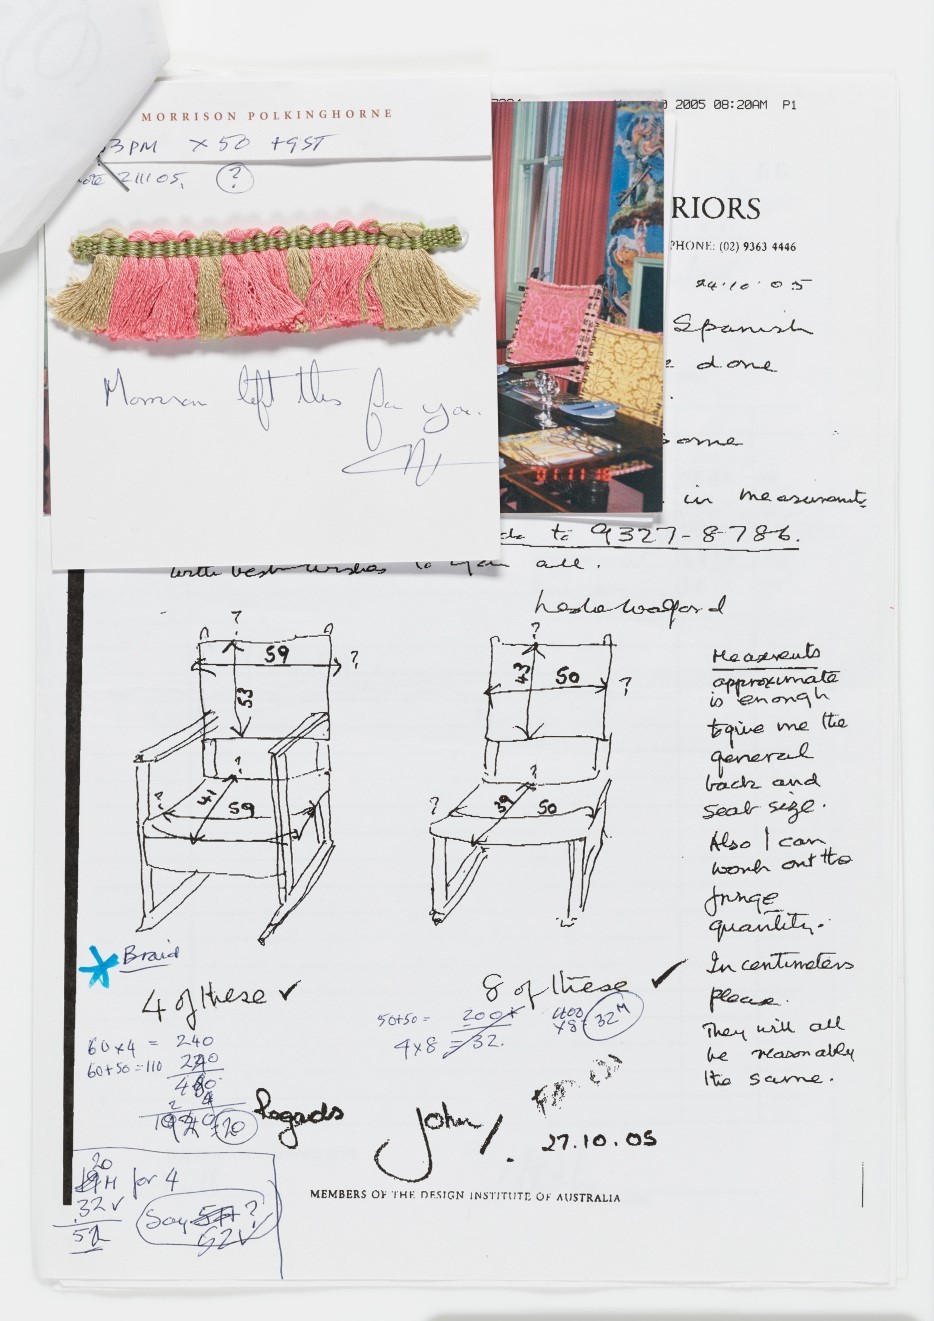 MORRISON POLKINGHORNE
3PM x 50 +GST
21105, ?
Morrison left this for you.
0 2005 08:20AM P1
RIORS
PHONE: (02) 9363 4446
24.10.05
Spanish
done
in measurements
to 9327-8786.
with best wishes to you all.
Leslie Walford
01 11 16
?
59
?
53
?
41
?
59
?
43
50
?
?
39
?
50
Measurements
approximate
is enough
to give me the
general
back and
seat size.
Also I can
work out the
fringe
quantity.
In centimeters
please.
They will all
be reasonably
the same.
Braid
4 of these ✓
8 of these ✓
60 x 4 = 240
60+50=110 220
20
50+50= 200+
4x8 = 32.
400
x8
32M
Regards
John
27.10.05
MEMBERS OF THE DESIGN INSTITUTE OF AUSTRALIA
20
19M for 4
32 ✓
52
Say ?
52 ✓